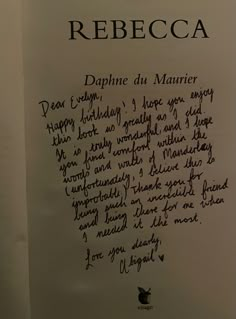 REBECCA
Daphne du Maurier
Dear Evelyn,
Happy birthday! I hope you enjoy
this book as greatly as I did.
It is truly wonderful, and I hope
you find comfort within the
words and walls of Manderley
(unfortunately, I believe this is
improbable). Thank you for
being such an incredible friend
and being there for me when
I needed it the most.
Love you dearly,
Abigail ♥